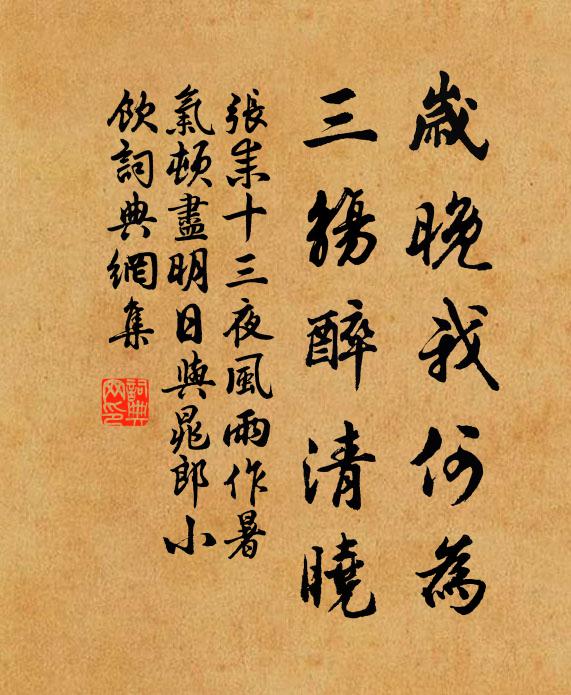 歲晚我何為
三觴醉清曉
張耒十三夜風雨作暑
氣頓盡明日與晁郎小
飲詞典網集
詞典
網印